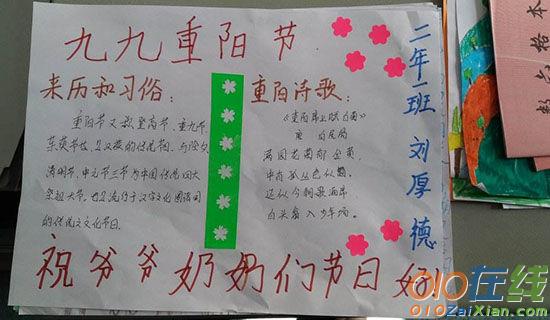 九九重阳节
来历和习俗：
重阳节又叫登高节、重九节、
茱萸节
清明节、中元节三节
祭祖大节，也是流行于汉字文化圈诸国
的传统文化节日。
重阳诗歌：
《重阳席上赋白菊》
满园花菊郁金黄，
中有孤丛色似霜。
还似今朝歌酒席，
白头翁入少年场。
祝爷爷奶奶们节日好
二年一班 刘厚德
010在线
010ZaiXian.com